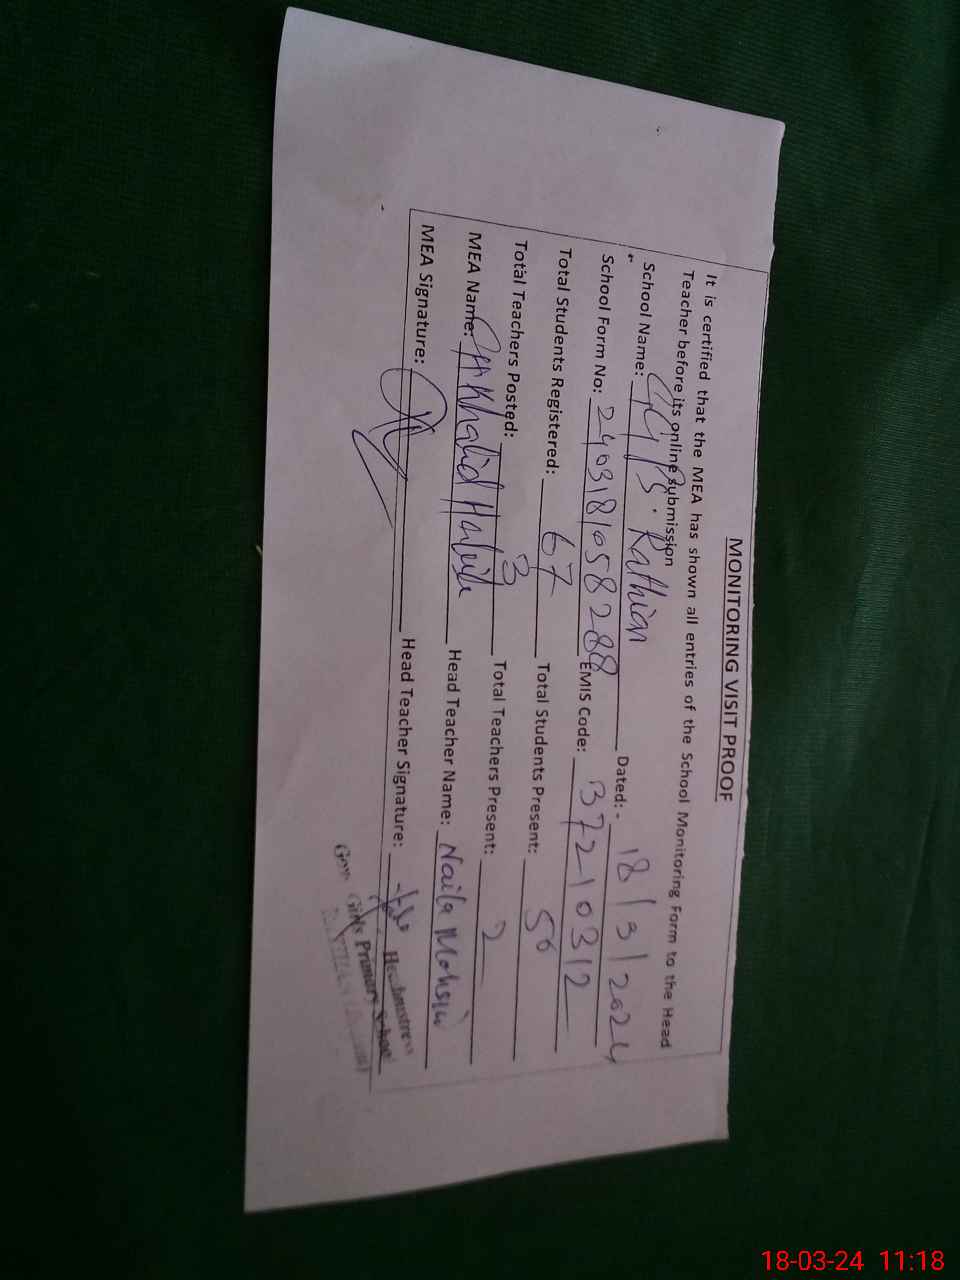 MONITORING VISIT PROOF
It is certified that the MEA has shown all entries of the School Monitoring Form to the Head
Teacher before its online submission
School Name: GGPS. Rathian Dated:- 18/3/2024
School Form No: 2403181058288 EMIS Code: 37210312
Total Students Registered: 67 Total Students Present: 56
Total Teachers Posted: 3 Total Teachers Present: 2
MEA Name: Khalid Habib Head Teacher Name: Naila Mohsin
MEA Signature: Head Teacher Signature:
Headmistress
Govt Girls Primary School
18-03-24 11:18